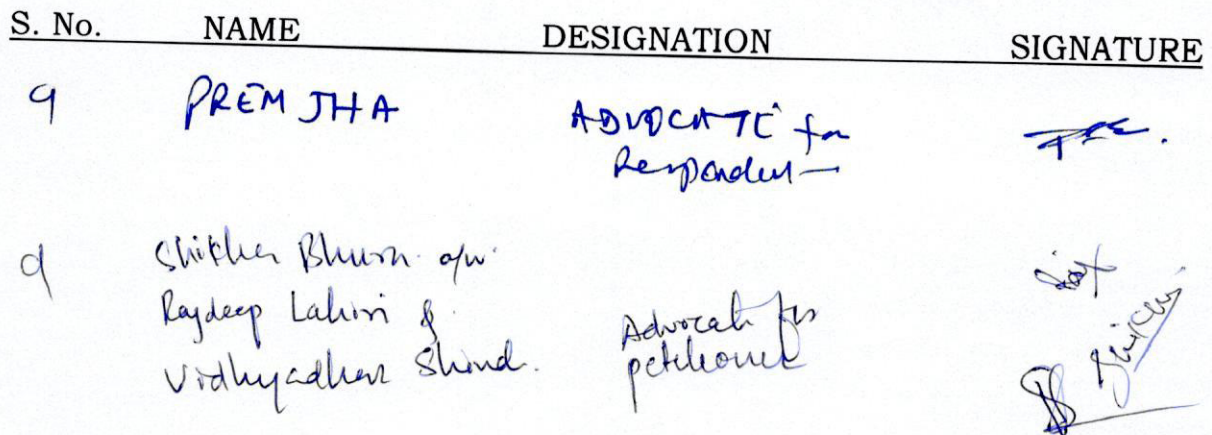 S. No. NAME DESIGNATION SIGNATURE
9 PREM JHA ADVOCATE for
Respondent
9 Shikha a/w.
Rajdeep Lahiri &
Vidhyadhar Shind.
Advocate for
petitioner